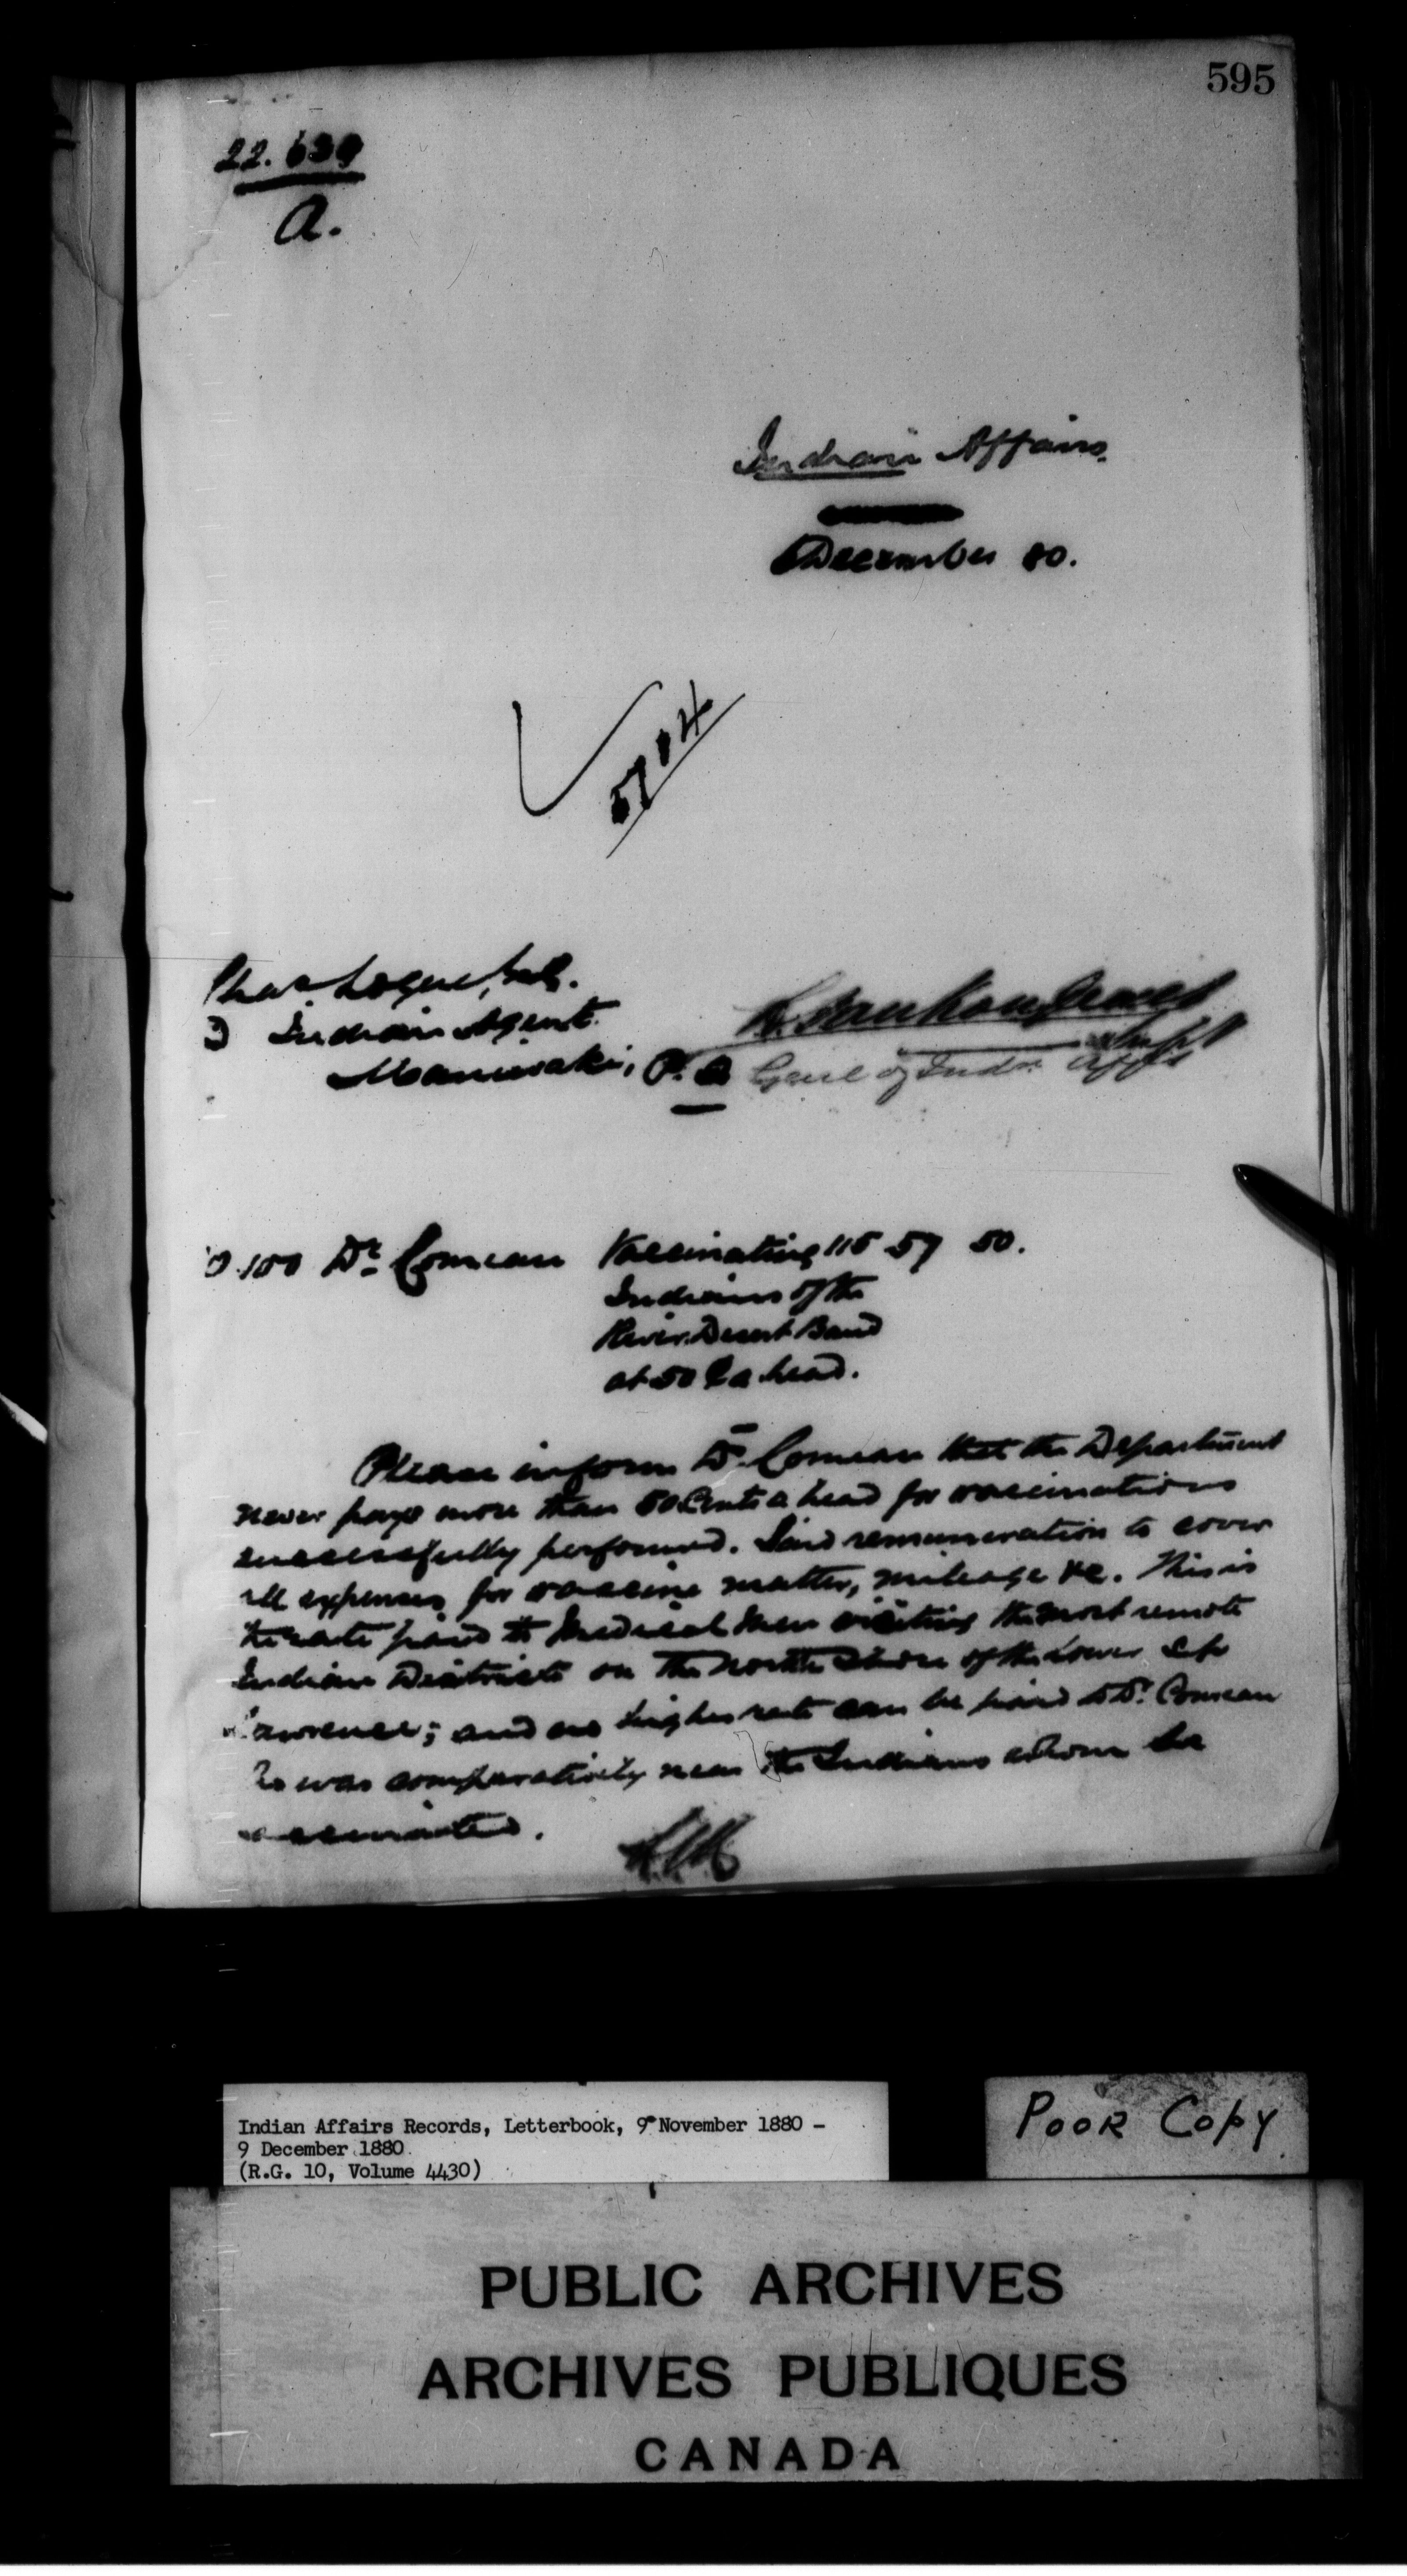 595
22.639
A.
Indian Affairs.
December 80.
5784
Chas Logue, Esq.
Indian Agent.
Maniwaki, P. Q
L. Vankoughnet
Supt
Genl of Indn Affs
100 Dr. Comeau Vaccinating 115 57 50.
Indians of the
River Desert Band
at 50 ¢ a head.
Please inform Dr. Comeau that the Department
never pays more than 50 Cents a head for vaccinations
successfully performed. Said remuneration to cover
all expenses for vaccine matter, mileage &c. This is
the rate paid to Medical Men visiting the most remote
Indian Districts on the North Shore of the Lower St
Lawrence; and no higher rate can be paid to Dr. Comeau
was comparatively near the Indians whom he
vaccinated.
Indian Affairs Records, Letterbook, 9 November 1880 -
9 December 1880.
(R.G. 10, Volume 4430)
POOR COPY
PUBLIC ARCHIVES
ARCHIVES PUBLIQUES
CANADA